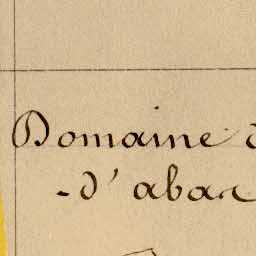 Domaine d
-d'abar